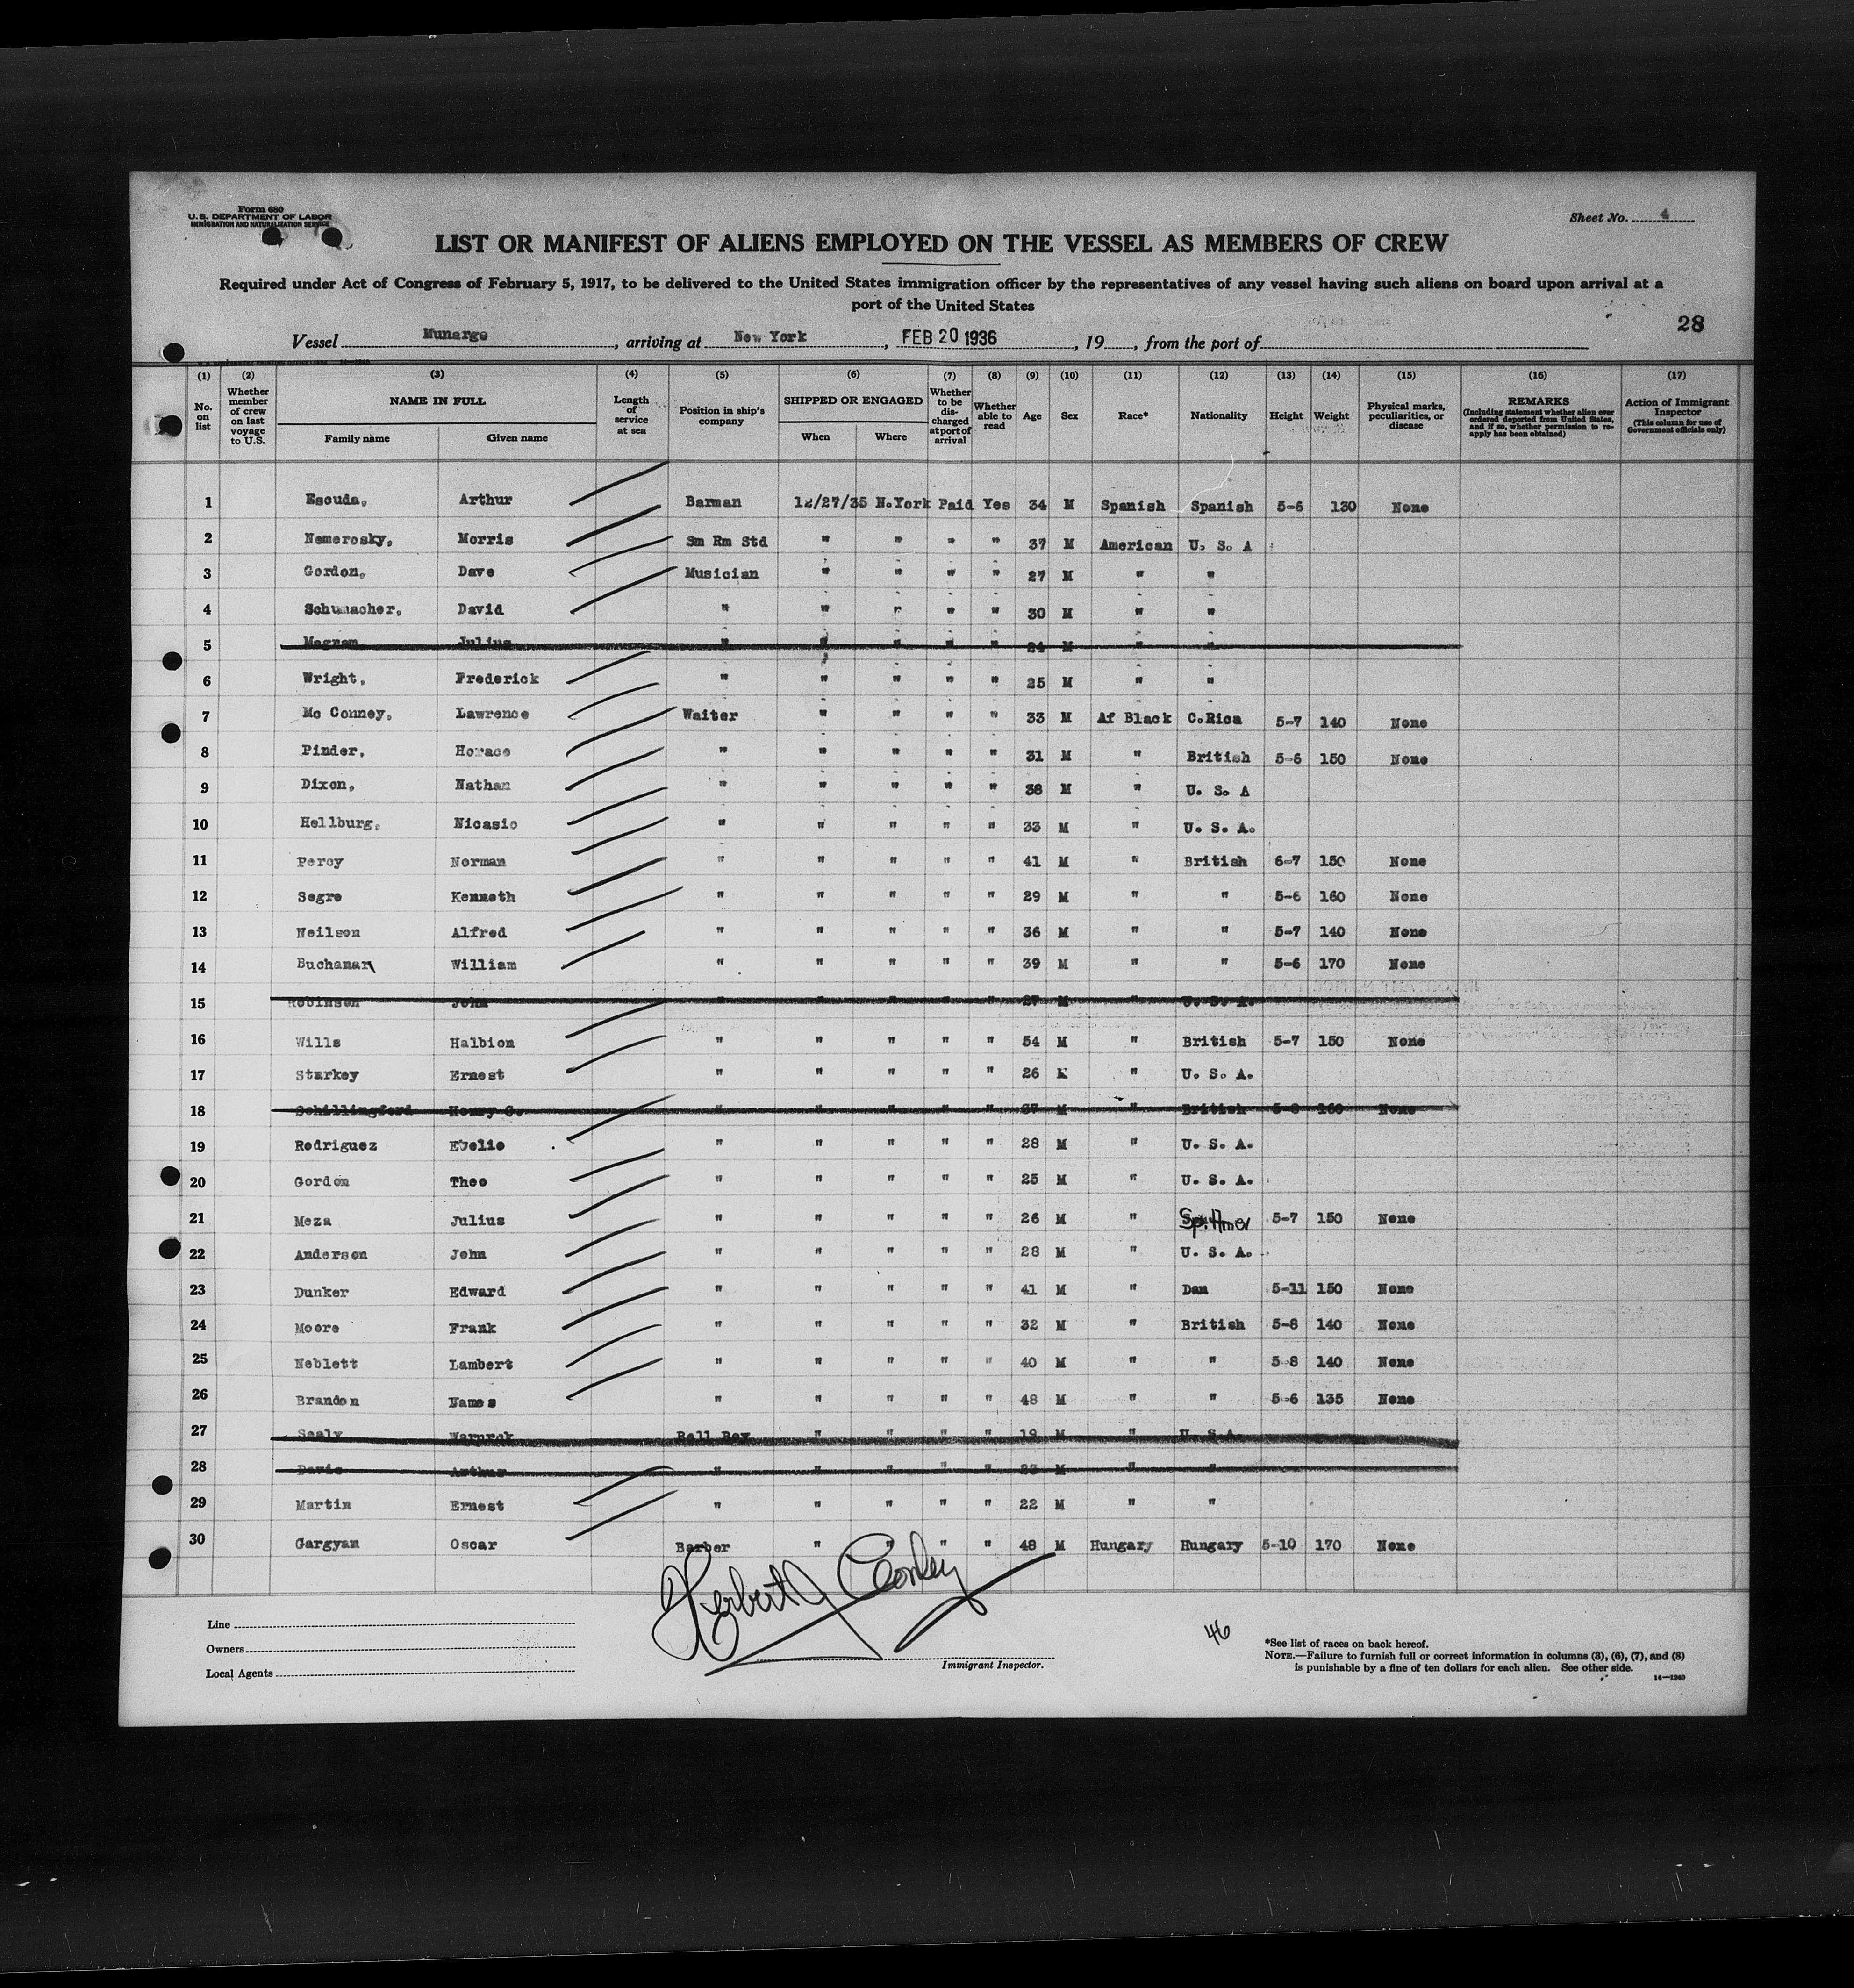 Form 680
U.S. DEPARTMENT OF LABOR
IMMIGRATION AND NATURALIZATION SERVICE
Sheet No. 4
LIST OR MANIFEST OF ALIENS EMPLOYED ON THE VESSEL AS MEMBERS OF CREW
Required under Act of Congress of February 5, 1917, to be delivered to the United States immigration officer by the representatives of any vessel having such aliens on board upon arrival at a
port of the United States
28
Vessel Munargo, arriving at New York, FEB 20 1936, 19, from the port of
(1) (2) (3) (4) (5) (6) (7) (8) (9) (10) (11) (12) (13) (14) (15) (16) (17)
No. on list Whether member of crew on last voyage to U.S. NAME IN FULL Family name Given name Length of service at sea Position in ship's company SHIPPED OR ENGAGED When Where Whether to be discharged at port of arrival Whether able to read Age Sex Race* Nationality Height Weight Physical marks, peculiarities, or disease REMARKS (Including statement whether alien ever ordered deported from United States, and if so, whether permission to reapply has been obtained) Action of Immigrant Inspector (This column for use of Government officials only)
1 Escuda, Arthur Barman 12/27/35 N.York Paid Yes 34 M Spanish Spanish 5-6 130 None
2 Nemerosky, Morris Sm Rm Std " " " " 37 M American U. S. A
3 Gordon, Dave Musician " " " " 27 M " "
4 Schumacher, David " " " " " 30 M " "
5 Magram Julius " " " " " 24 M " "
6 Wright, Frederick " " " " " 25 M " "
7 Mc Conney, Lawrence Waiter " " " " 33 M Af Black C.Rica 5-7 140 None
8 Pinder, Horace " " " " " 31 M " British 5-6 150 None
9 Dixon, Nathan " " " " " 38 M " U. S. A
10 Hellburg, Nicasio " " " " " 33 M " U. S. A.
11 Percy Norman " " " " " 41 M " British 6-7 150 None
12 Segre Kenneth " " " " " 29 M " " 5-6 160 None
13 Neilson Alfred " " " " " 36 M " " 5-7 140 None
14 Buchanan William " " " " " 39 M " " 5-6 170 None
15 Robinson John " " " " " 27 M " U. S. A.
16 Wills Halbion " " " " " 54 M " British 5-7 150 None
17 Starkey Ernest " " " " " 26 M " U. S. A.
18 Schillingford Henry C. " " " " " 37 M " British 5-8 160 None
19 Rodriguez Evelio " " " " " 28 M " U. S. A.
20 Gordon Theo " " " " " 25 M " U. S. A.
21 Meza Julius " " " " " 26 M " Sp. Amer 5-7 150 None
22 Anderson John " " " " " 28 M " U. S. A.
23 Dunker Edward " " " " " 41 M " Dan 5-11 150 None
24 Moore Frank " " " " " 32 M " British 5-8 140 None
25 Neblett Lambert " " " " " 40 M " " 5-8 140 None
26 Brandon Names " " " " " 48 M " " 5-6 135 None
27 Sealy Bell Boy " " " " 19 M " U. S.A.
28 Davis Arthur " " " " " 23 M " "
29 Martin Ernest " " " " " 22 M " "
30 Gargyan Oscar Barber " " " " 48 M Hungary Hungary 5-10 170 None
Line
Owners
Local Agents
Herbert J Conley
Immigrant Inspector.
46
*See list of races on back hereof.
NOTE.—Failure to furnish full or correct information in columns (3), (6), (7), and (8)
is punishable by a fine of ten dollars for each alien. See other side.
14—1240